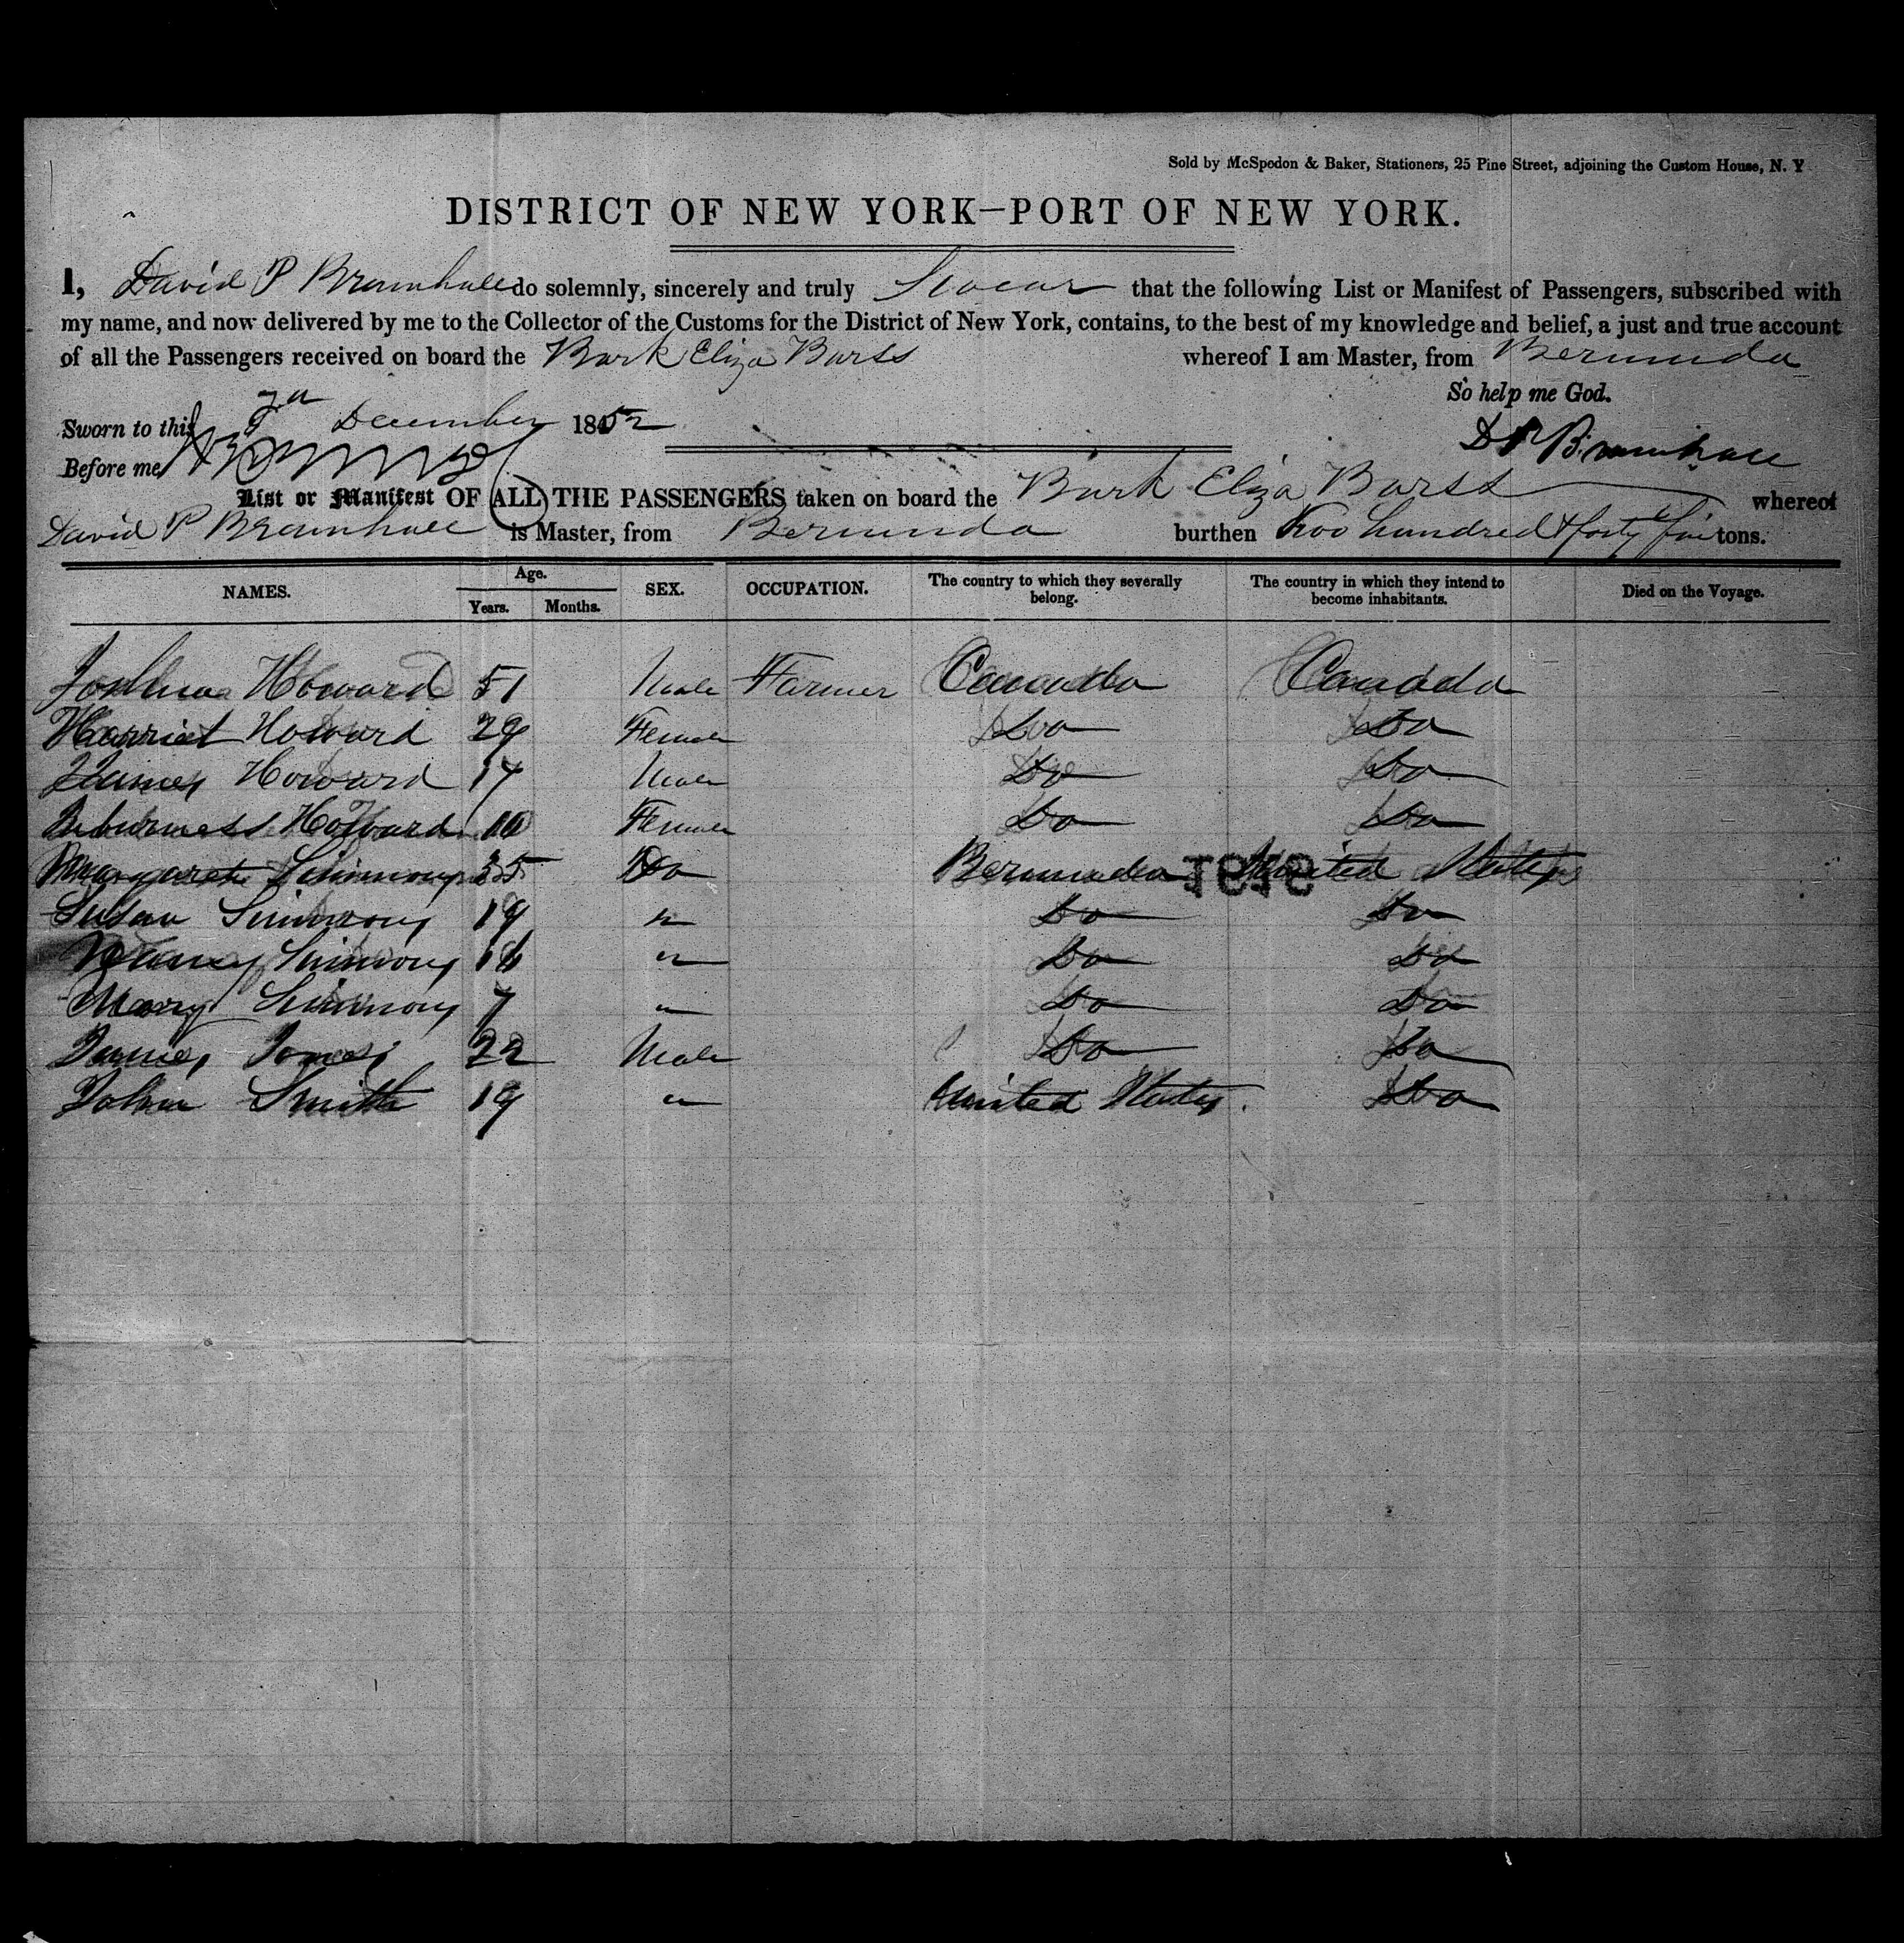 Sold by McSpedon & Baker, Stationers, 25 Pine Street, adjoining the Custom House, N. Y
DISTRICT OF NEW YORK—PORT OF NEW YORK.
I, David P Bramhall do solemnly, sincerely and truly Swear that the following List or Manifest of Passengers, subscribed with
my name, and now delivered by me to the Collector of the Customs for the District of New York, contains, to the best of my knowledge and belief, a just and true account
of all the Passengers received on board the Bark Eliza Barss whereof I am Master, from Bermuda
So help me God.
Sworn to this December 1852
D P Bramhall
Before me
List or Manifest OF ALL THE PASSENGERS taken on board the Bark Eliza Barss whereof
David P Bramhall is Master, from Bermuda burthen Two hundred & forty five tons.
NAMES. Age. Years. Months. SEX. OCCUPATION. The country to which they severally belong. The country in which they intend to become inhabitants. Died on the Voyage.
Joshua Howard 51 Male Farmer Canada Canada
Harriet Howard 29 Female Do Do
James Howard 17 Male Do Do
Howard 10 Female Do Do
Margaret Simmons 35 Do Bermuda United States
1919
Susan Simmons 19 " Do Do
Nancy Simmons 16 " Do Do
Mary Simmons 7 " Do Do
James Jones 22 Male Do Do
John Smith 19 " United States Do